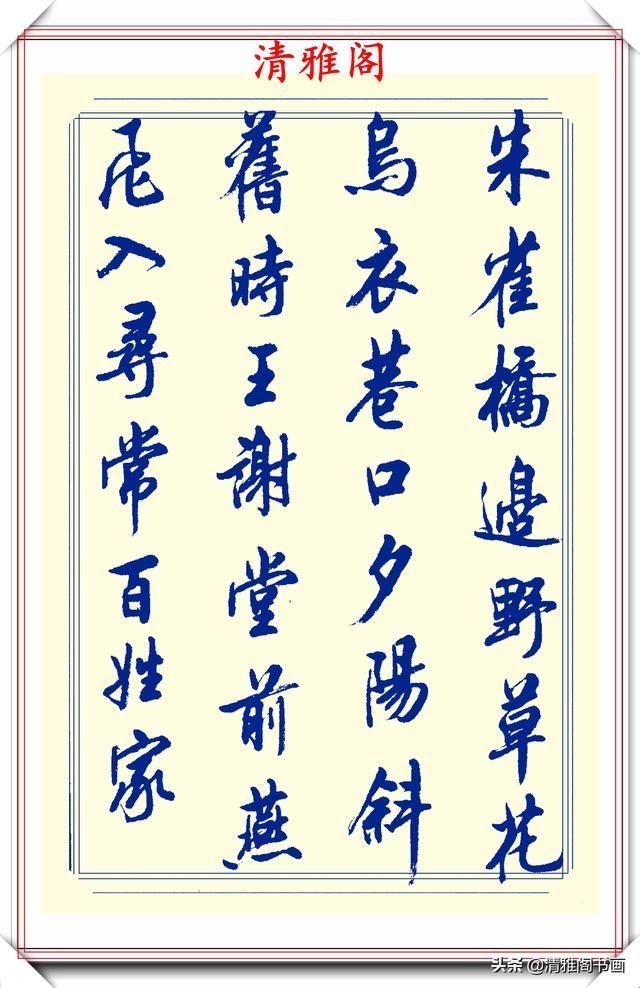 清雅阁
朱雀橋邊野草花
烏衣巷口夕陽斜
舊時王謝堂前燕
飛入尋常百姓家
头条@清雅阁书画